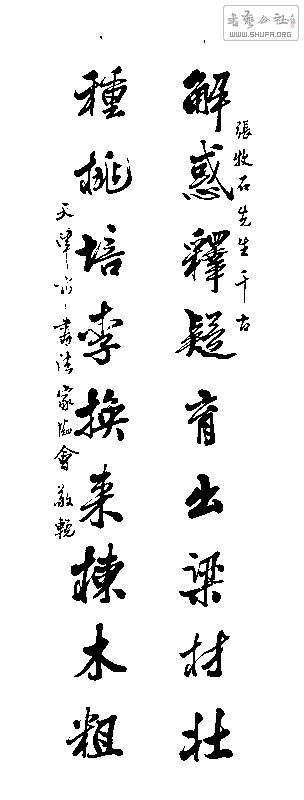 書藝公社
WWW.SHUFA.ORG
張牧石先生千古
解惑釋疑育出梁材壯
種桃培李換来棟木粗
天津市書法家協會敬輓